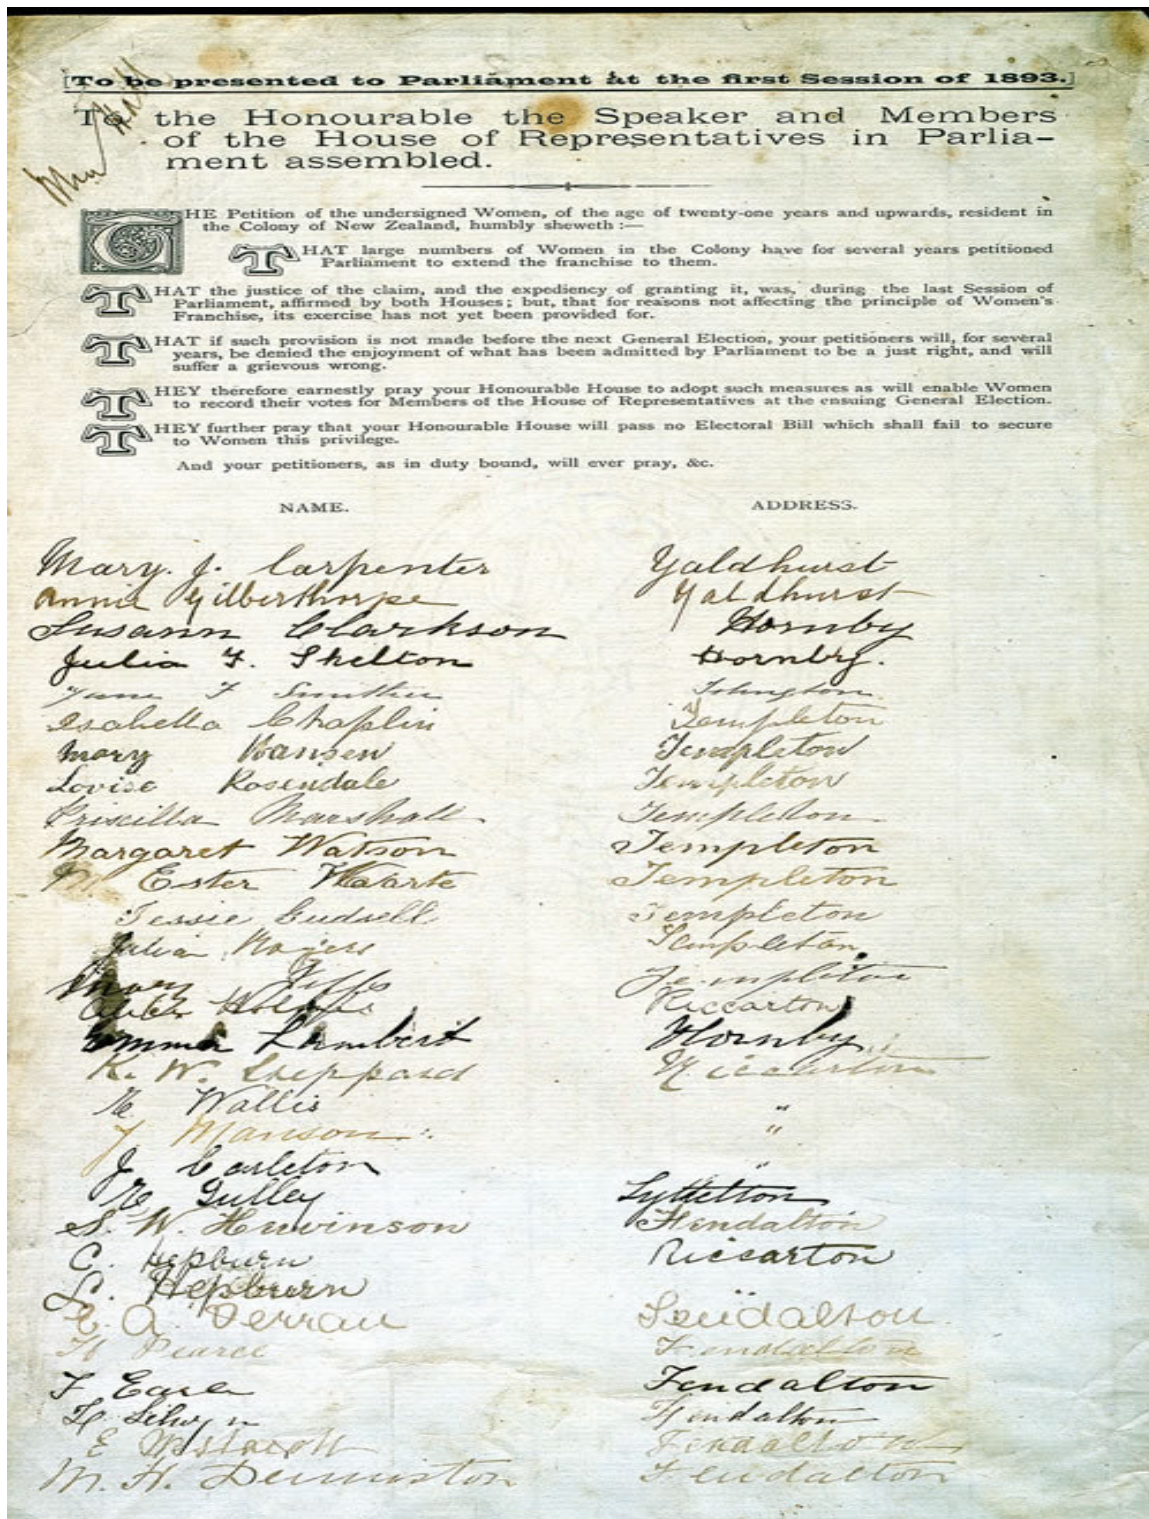 [To be presented to Parliament at the first Session of 1893.]
To the Honourable the Speaker and Members
of the House of Representatives in Parlia-
ment assembled.
Hall
THE Petition of the undersigned Women, of the age of twenty-one years and upwards, resident in
the Colony of New Zealand, humbly sheweth :—
THAT large numbers of Women in the Colony have for several years petitioned
Parliament to extend the franchise to them.
THAT the justice of the claim, and the expediency of granting it, was, during the last Session of
Parliament, affirmed by both Houses; but, that for reasons not affecting the principle of Women's
Franchise, its exercise has not yet been provided for.
THAT if such provision is not made before the next General Election, your petitioners will, for several
years, be denied the enjoyment of what has been admitted by Parliament to be a just right, and will
suffer a grievous wrong.
THEY therefore earnestly pray your Honourable House to adopt such measures as will enable Women
to record their votes for Members of the House of Representatives at the ensuing General Election.
THEY further pray that your Honourable House will pass no Electoral Bill which shall fail to secure
to Women this privilege.
And your petitioners, as in duty bound, will ever pray, &c.
NAME. ADDRESS.
Mary. J. Carpenter Yaldhurst
Annie Gilberthorpe Yaldhurst
Susann Clarkson Hornby
Julia F. Shelton Hornby.
Jane F
Isabella Chaplin Templeton
Mary Hansen Templeton
Lovise Rosendale Templeton
Priscilla Marshall Templeton
Margaret Watson Templeton
M. Ester Templeton
Jessie Templeton
Julia Rogers Templeton
Mary Templeton
Holmes Riccarton
Emma Lambert Hornby
K. W. Sheppard Riccarton
Wallis "
J Manson "
J Carleton "
Gulley Lyttelton
S. W. Fendalton
C. Hepburn Riccarton
L. Hepburn
E. A. Fendalton
H Pearce Fendalton
F Earle Fendalton
Selwyn Fendalton
E Fendalton
M. H. Denniston Fendalton